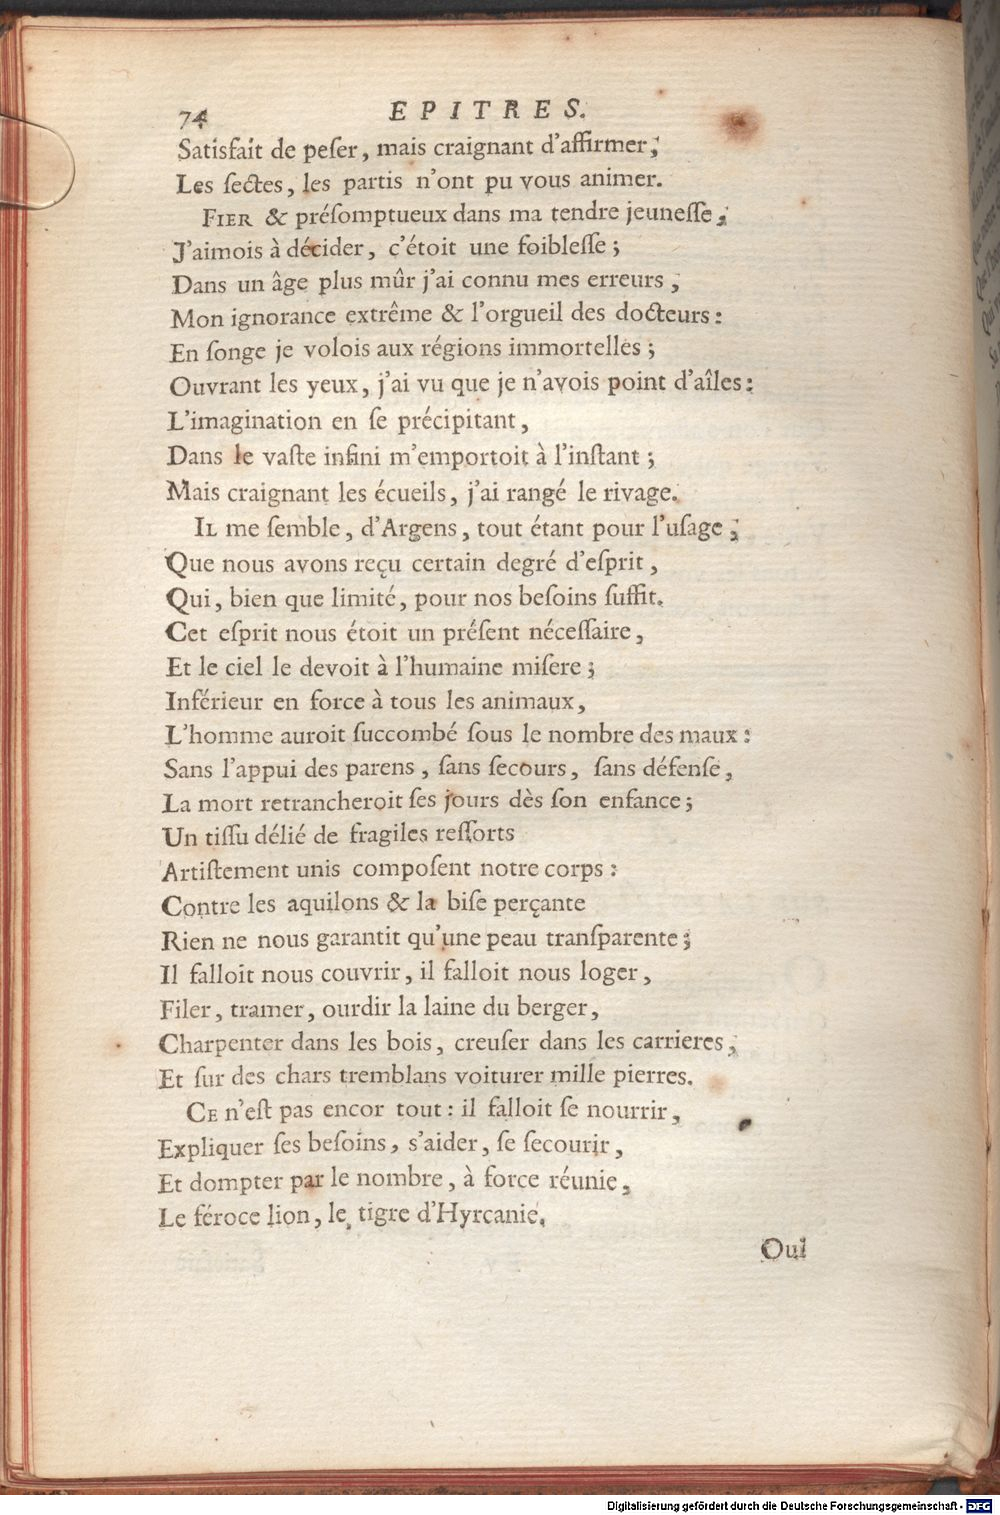 74 EPITRES.
Satisfait de peſer, mais craignant d'affirmer;
Les ſectes, les partis n'ont pu vous animer.
FIER & préſomptueux dans ma tendre jeuneſſe,
J'aimois à décider, c'étoit une foibleſſe;
Dans un âge plus mûr j'ai connu mes erreurs,
Mon ignorance extrême & l'orgueil des docteurs:
En ſonge je volois aux régions immortelles;
Ouvrant les yeux, j'ai vu que je n'avois point d'aîles:
L'imagination en ſe précipitant,
Dans le vaſte infini m'emportoit à l'inſtant;
Mais craignant les écueils, j'ai rangé le rivage.
IL me ſemble, d'Argens, tout étant pour l'uſage,
Que nous avons reçu certain degré d'eſprit,
Qui, bien que limité, pour nos beſoins ſuffit.
Cet eſprit nous étoit un préſent néceſſaire,
Et le ciel le devoit à l'humaine miſere;
Inférieur en force à tous les animaux,
L'homme auroit ſuccombé ſous le nombre des maux:
Sans l'appui des parens, ſans ſecours, ſans défenſe,
La mort retrancheroit ſes jours dès ſon enfance;
Un tiſſu délié de fragiles reſſorts
Artiſtement unis compoſent notre corps:
Contre les aquilons & la biſe perçante
Rien ne nous garantit qu'une peau tranſparente;
Il falloit nous couvrir, il falloit nous loger,
Filer, tramer, ourdir la laine du berger,
Charpenter dans les bois, creuſer dans les carrieres,
Et ſur des chars tremblans voiturer mille pierres.
CE n'eſt pas encor tout: il falloit ſe nourrir,
Expliquer ſes beſoins, s'aider, ſe ſecourir,
Et dompter par le nombre, à force réunie,
Le féroce lion, le tigre d'Hyrcanie.
Oui
Digitalisierung gefördert durch die Deutsche Forschungsgemeinschaft - DFG